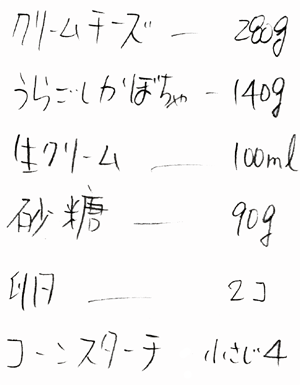 クリームチーズ — 280g
うらごしかぼちゃ - 140g
生クリーム — 100ml
砂糖 — 90g
卵 — 2コ
コーンスターチ 小さじ4